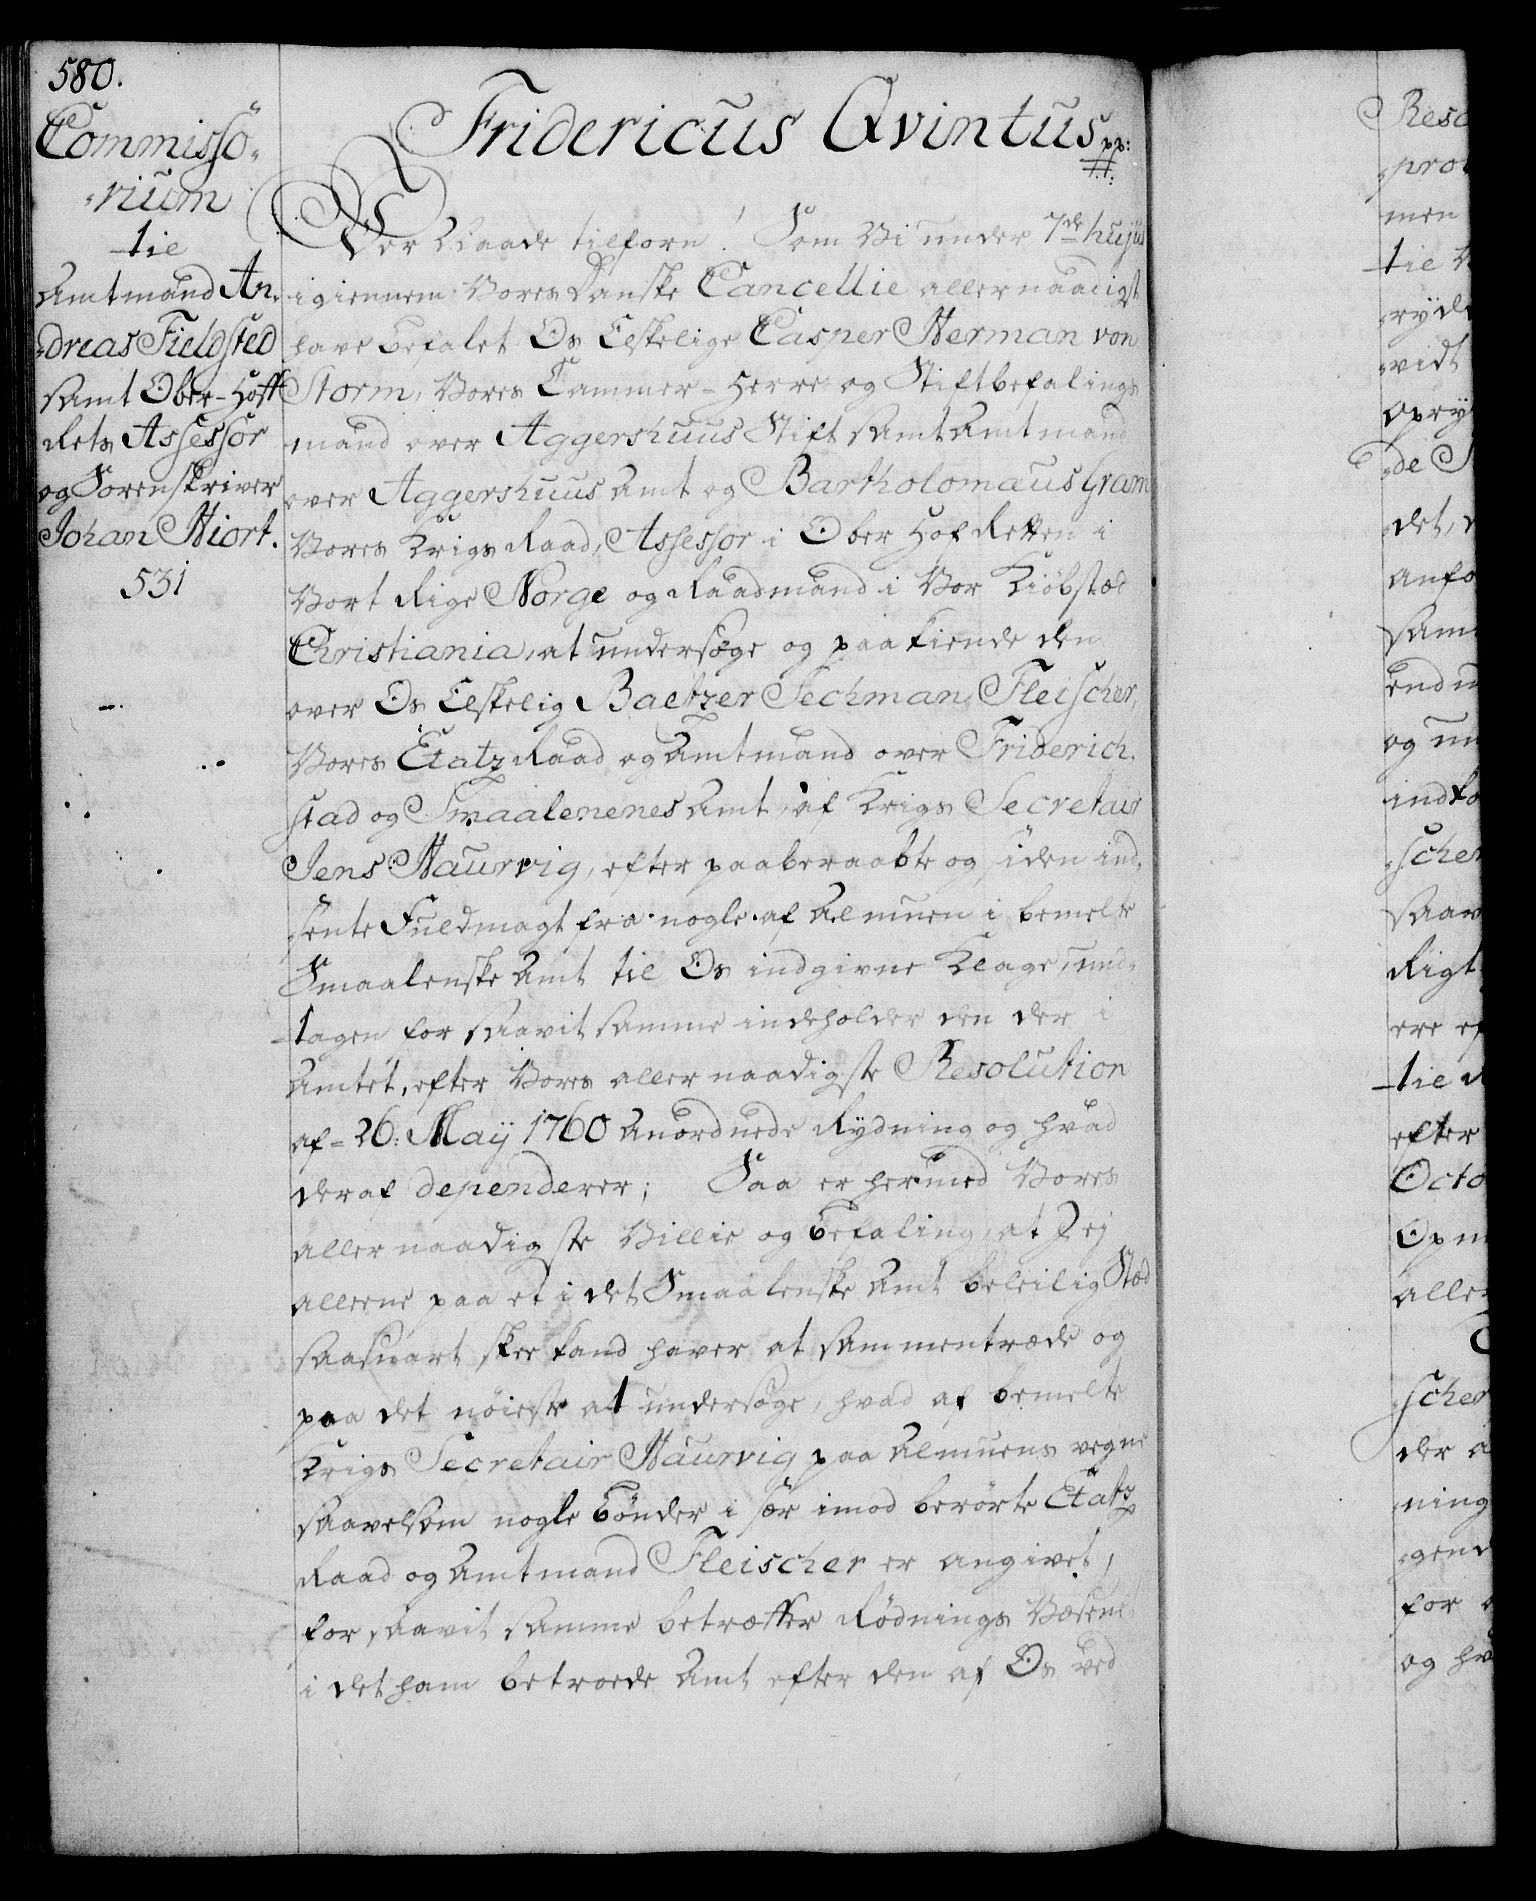 580.
Commisso-
-rium
tie
Amtmand An-
-dreas Fieldsted
samt Ober-Hoff
Rets Assessor
og Sorenskriver
Johan Hiort.
531
Fridericus Qvintus pp:
Vor Naade tilforn! Som Vi under 7de hujus
igiennem Vores Danske Cancellie allernaadigst
have befalet Os Elskelige Casper Herman von
Storm, Vores Cammer-Herre og Stiftbefalings
mand over Aggershuus Stift samt Amtmand
over Aggershuus Amt og Bartholomæus Gram
Vores Krigs Raad, Assessor i Ober Hof Retten i
Vort Rige Norge og Raadmand i Vor Kiöbstæd
Christiania, at undersøge og paakiende den
over Os Elskelig Baltzer Sechman Fleischer,
Vores Etatz Raad og Amtmand over Friderich-
stad og Smaalenenes Amt, af Krigs Secretair
Jens Haurvig, efter paaberaabte og siden ind-
sente Fuldmagt fra nogle af Almuen i bemelte
Smaalenske Amt til Os indgivne Klage, und-
tagen for saavit samme indeholder den der i
Amtet, efter Vores allernaadigste Resolution
af 26: Maij 1760 anordnede Rydning og hvad
deraf dependerer; Saa er hermed Vores
allernaadigste Villie og Befaling, at I ej
alleene paa et i det Smaalenske Amt beleilig Stæd
saasnart skee kand haver at sammentræde og
paa det nöieste at undersöge, hvad af bemelte
Krigs Secretair Haurvig paa Almuens vegne
saavelsom nogle Bönder i sær imod berörte Etatz
Raad og Amtmand Fleischer er angivet,
for saavit samme betræffer Rödnings Væsenet
i det ham betroede Amt efter den af Os ved
Reso
-pro
men
tie
-ryd
-vidt
opry
-de
det,
anfo
sam
endn
og un
indko
-scher
saav
Rigt
ere ef
tie
efter
Octo
Opm
aller
scher
der a
-ning
-gend
for
og hv